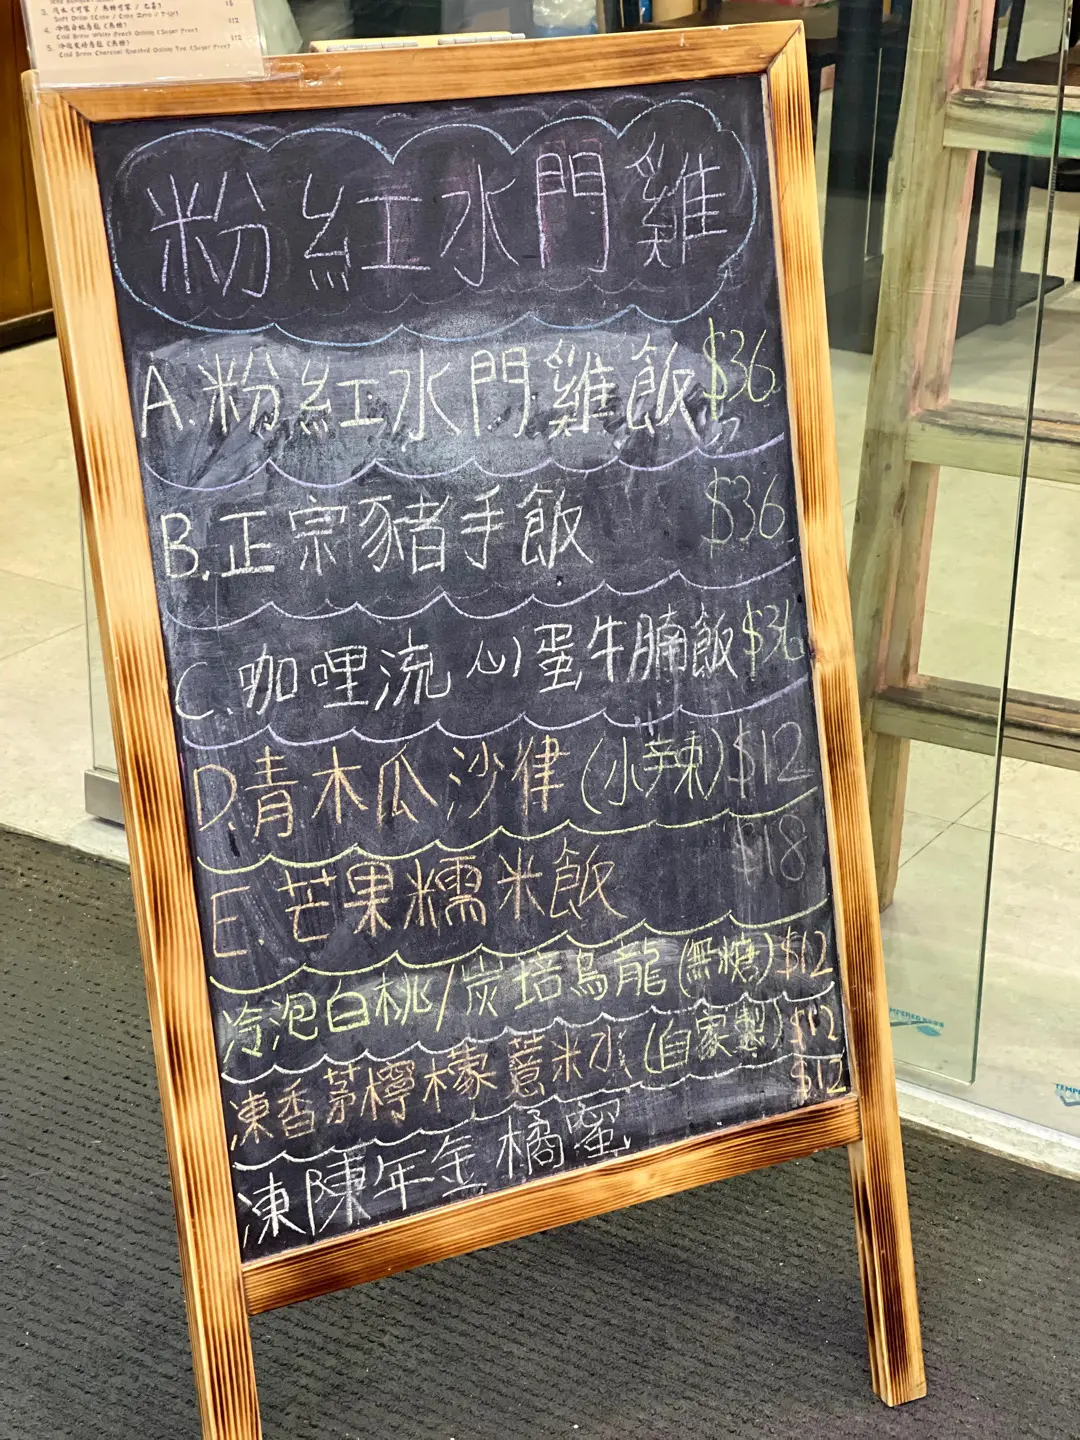 3. 汽水 (可樂 / 無糖可樂 / 七喜)
Soft Drink (Coke / Coke Zero / 7-Up)
4. 冷泡白桃烏龍 (無糖) $12
Cold Brew White Peach Oolong (Sugar Free)
5. 冷泡炭培烏龍 (無糖) $12
Cold Brew Charcoal Roasted Oolong Tea (Sugar Free)
粉紅水門雞
A.粉紅水門雞飯$36
B.正宗豬手飯 $36
C.咖哩流心蛋牛腩飯$36
D.青木瓜沙律(小辣)$12
E.芒果糯米飯 $18
冷泡白桃/炭培烏龍(無糖)$12
凍香茅檸檬薏米水(自家製)$12
凍陳年金橘蜜 $12
TEMPERED